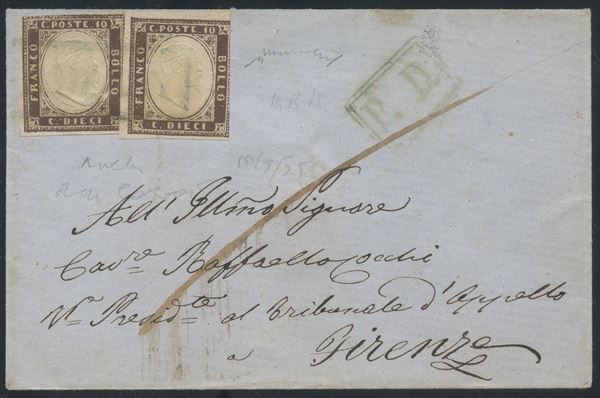 C. POSTE 10
FRANCO
BOLLO
C. DIECI
C. POSTE 10
FRANCO
BOLLO
C. DIECI
P. D.
All' Illmo Signore
Cavre Raffaello Cocchi
Ve Presidte al Tribunale d'Appello
a Firenze